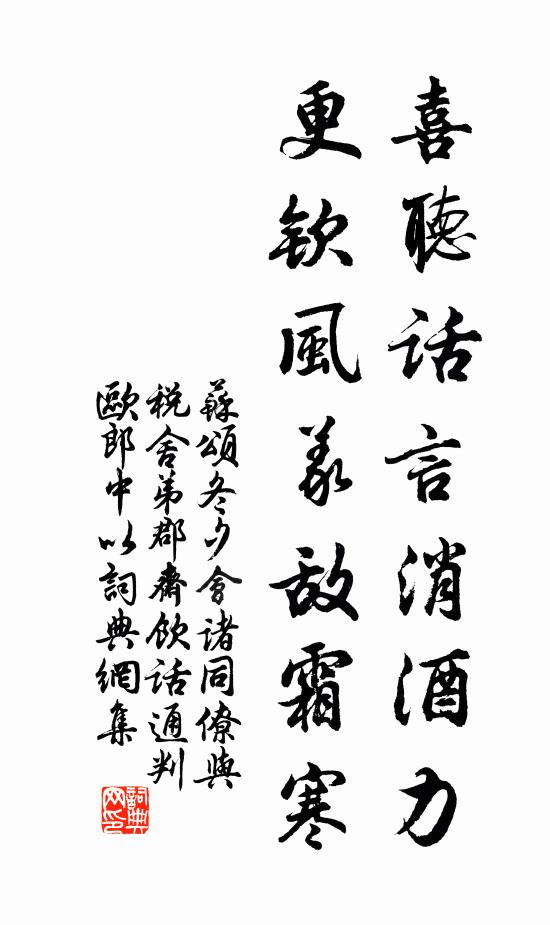 喜聽話言消酒力
更欽風義敵霜寒
蘇頌冬夕會諸同僚與
税舍弟郡齋飲話通判
歐郎中以詞典網集
詞典网印